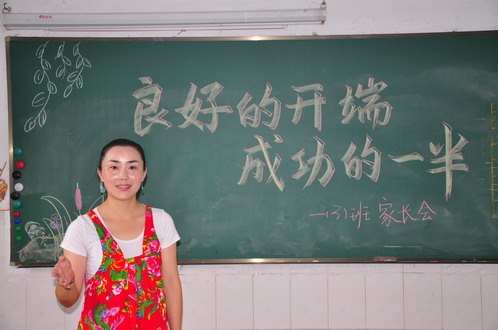 良好的开端
成功的一半
一(3)班家长会